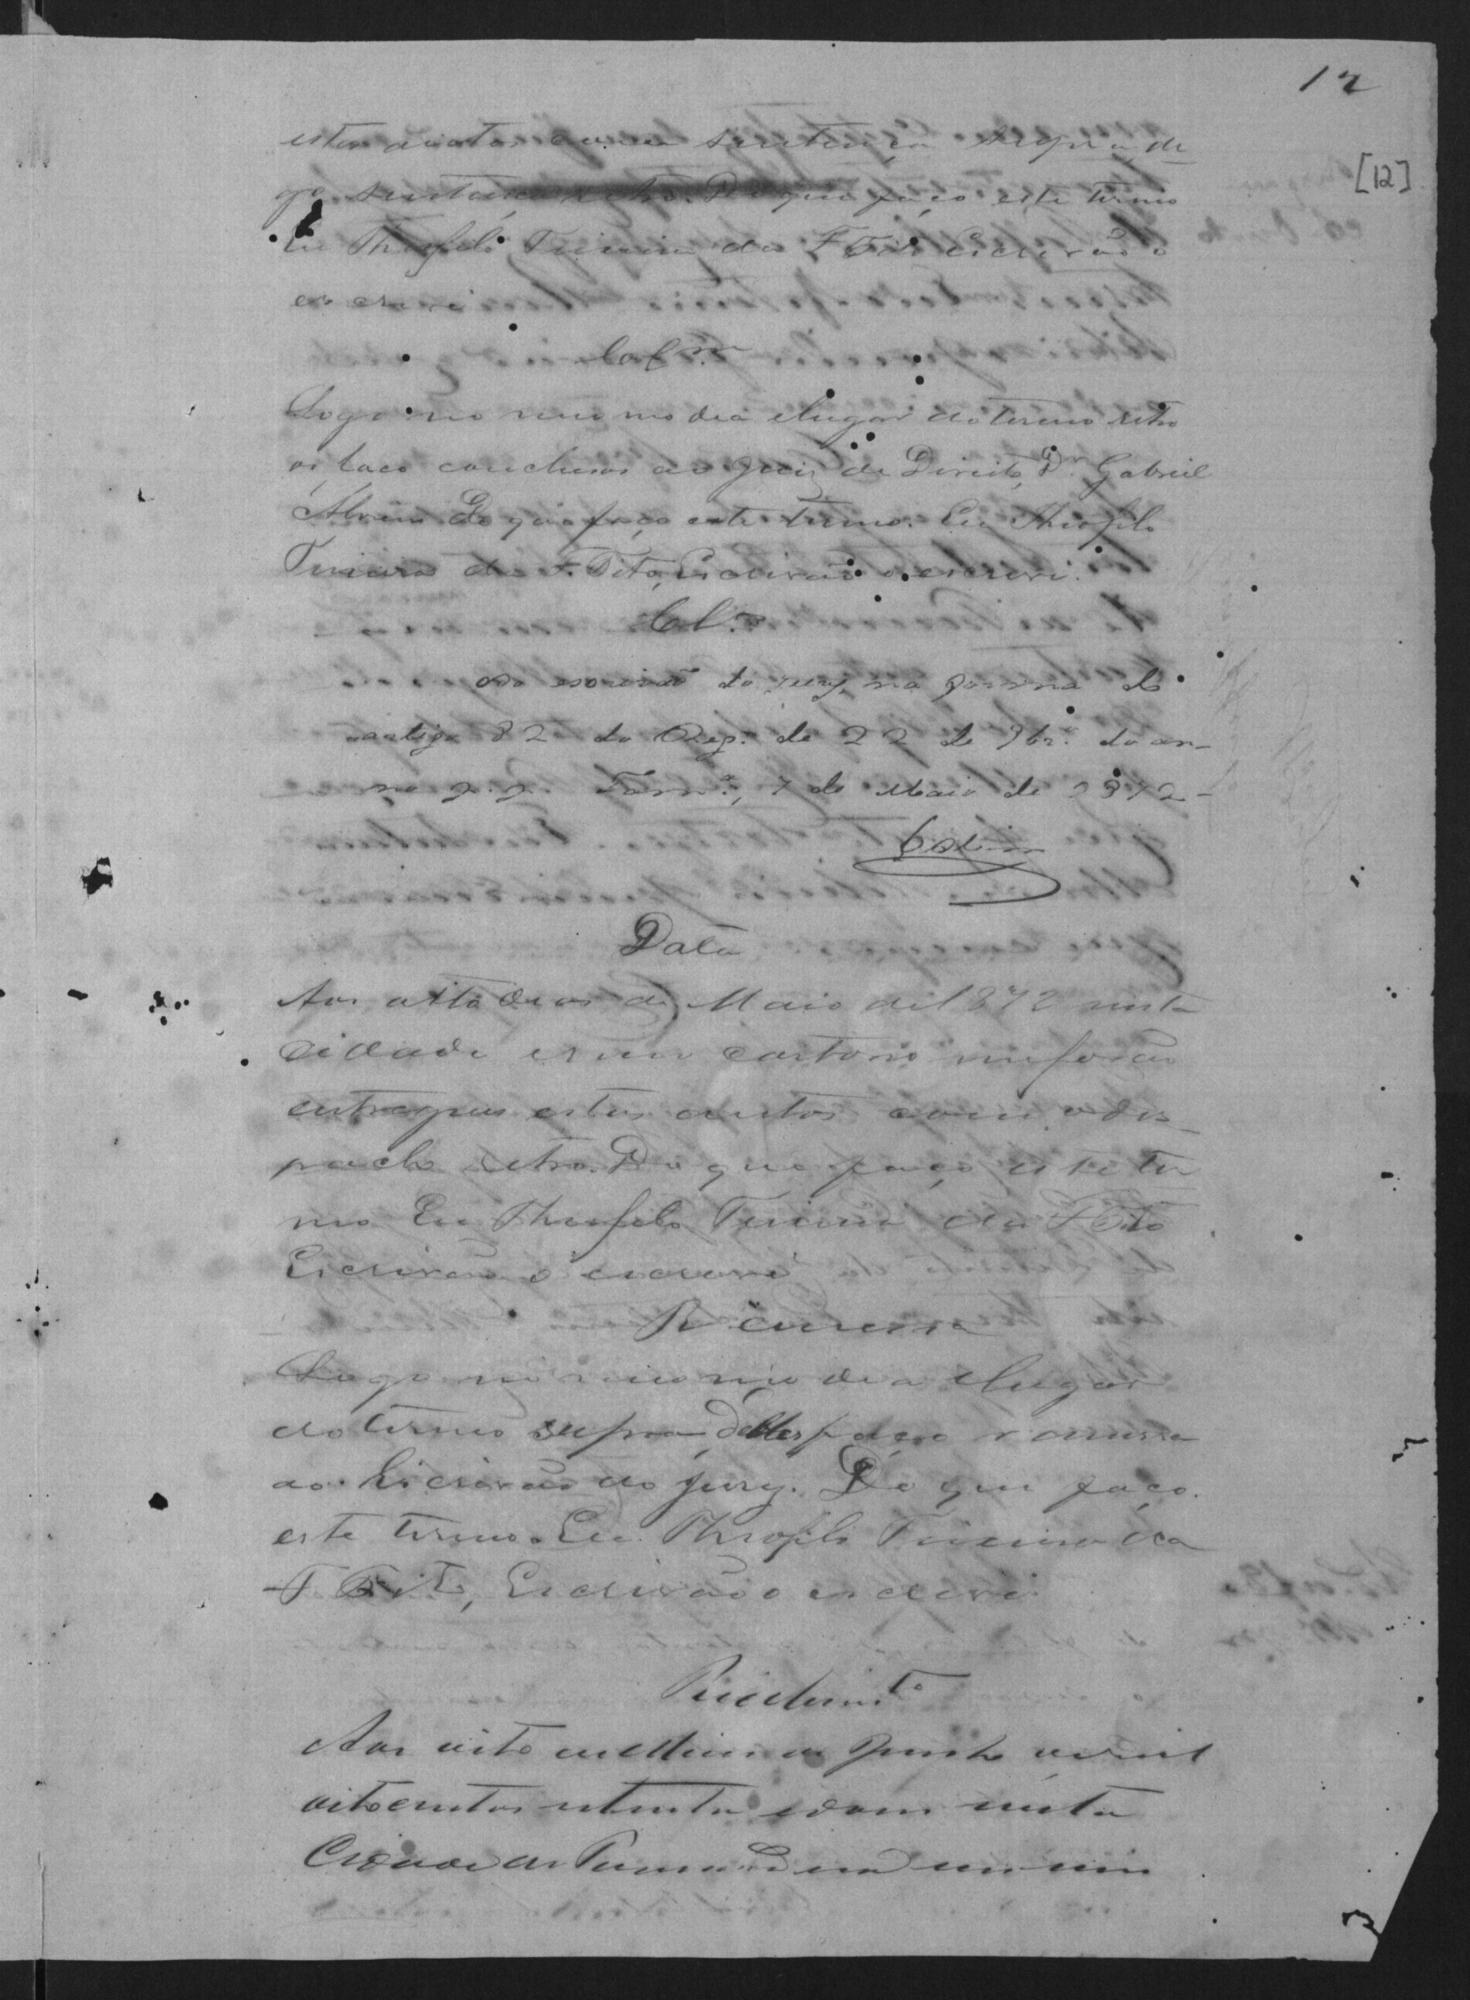 12
[12]
estes autos com a sentença
sentença retro. Do que faço este termo
Eu Theofilo Teixeira da F. Tito Escrivão o
escrevi
Cls.
Logo no mesmo dia e lugar do termo retro
os faço conclusos ao Juiz de Direito, Dr. Gabriel
De que faço este termo. Eu Theofilo
Teixeira da F. Tito, Escrivão o escrevi.
Cls.
Ao escrivão do jury, na forma do
artigo 82 do Reg. de 22 de 9br.o do an-
no p.p. 7 de Maio de 1872-
Data
Aos oito dias de Maio de 1872 nesta
cidade em meu cartorio me forão
entregues estes autos com o des-
pacho retro. Do que faço este ter
mo Eu Theofilo Teixeira da F. Tito
Escrivão o escrevi
Remessa
Logo no mesmo dia e lugar
do termo supra delles faço remessa
ao Escrivão do Jury. Do que faço
este termo. Eu Theofilo Teixeira da
F. Tito, Escrivão o escrevi.
Recebim.to
Aos oito de Junho de mil
oitocentos setenta e dous nesta
Cidade de em meu